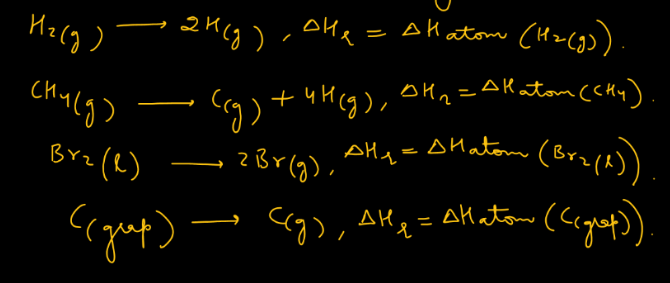 H₂(g) ⟶ 2H(g), ΔHr = ΔH atom (H₂(g)).
CH₄(g) ⟶ C(g) + 4H(g), ΔHr = ΔH atom (CH₄).
Br₂(l) ⟶ 2Br(g), ΔHr = ΔH atom (Br₂(l)).
C(grap) ⟶ C(g), ΔHr = ΔH atom (C(grap)).